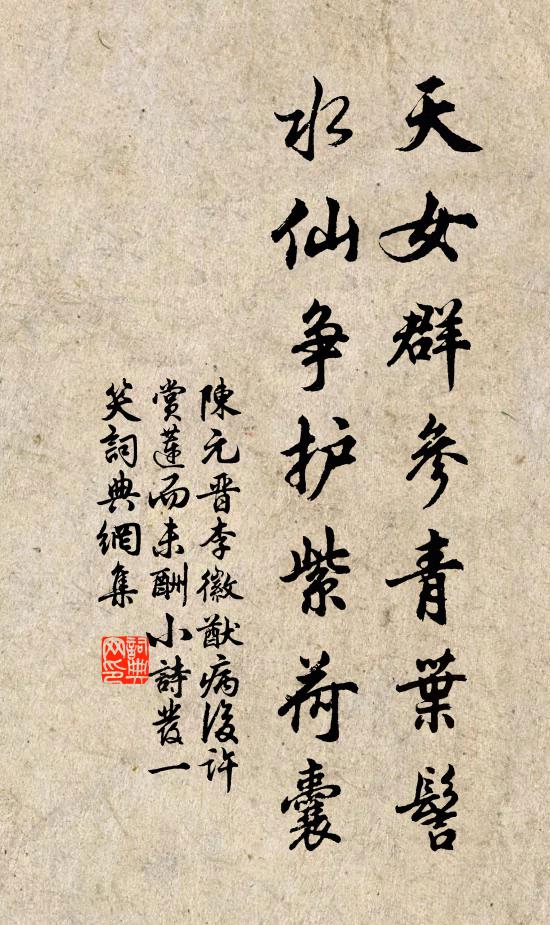 天女群參青葉髻
水仙争护紫荷囊
陳元晋李徽猷病後許
賞蓮而未酬小詩發一
笑詞典網集
詞典网印